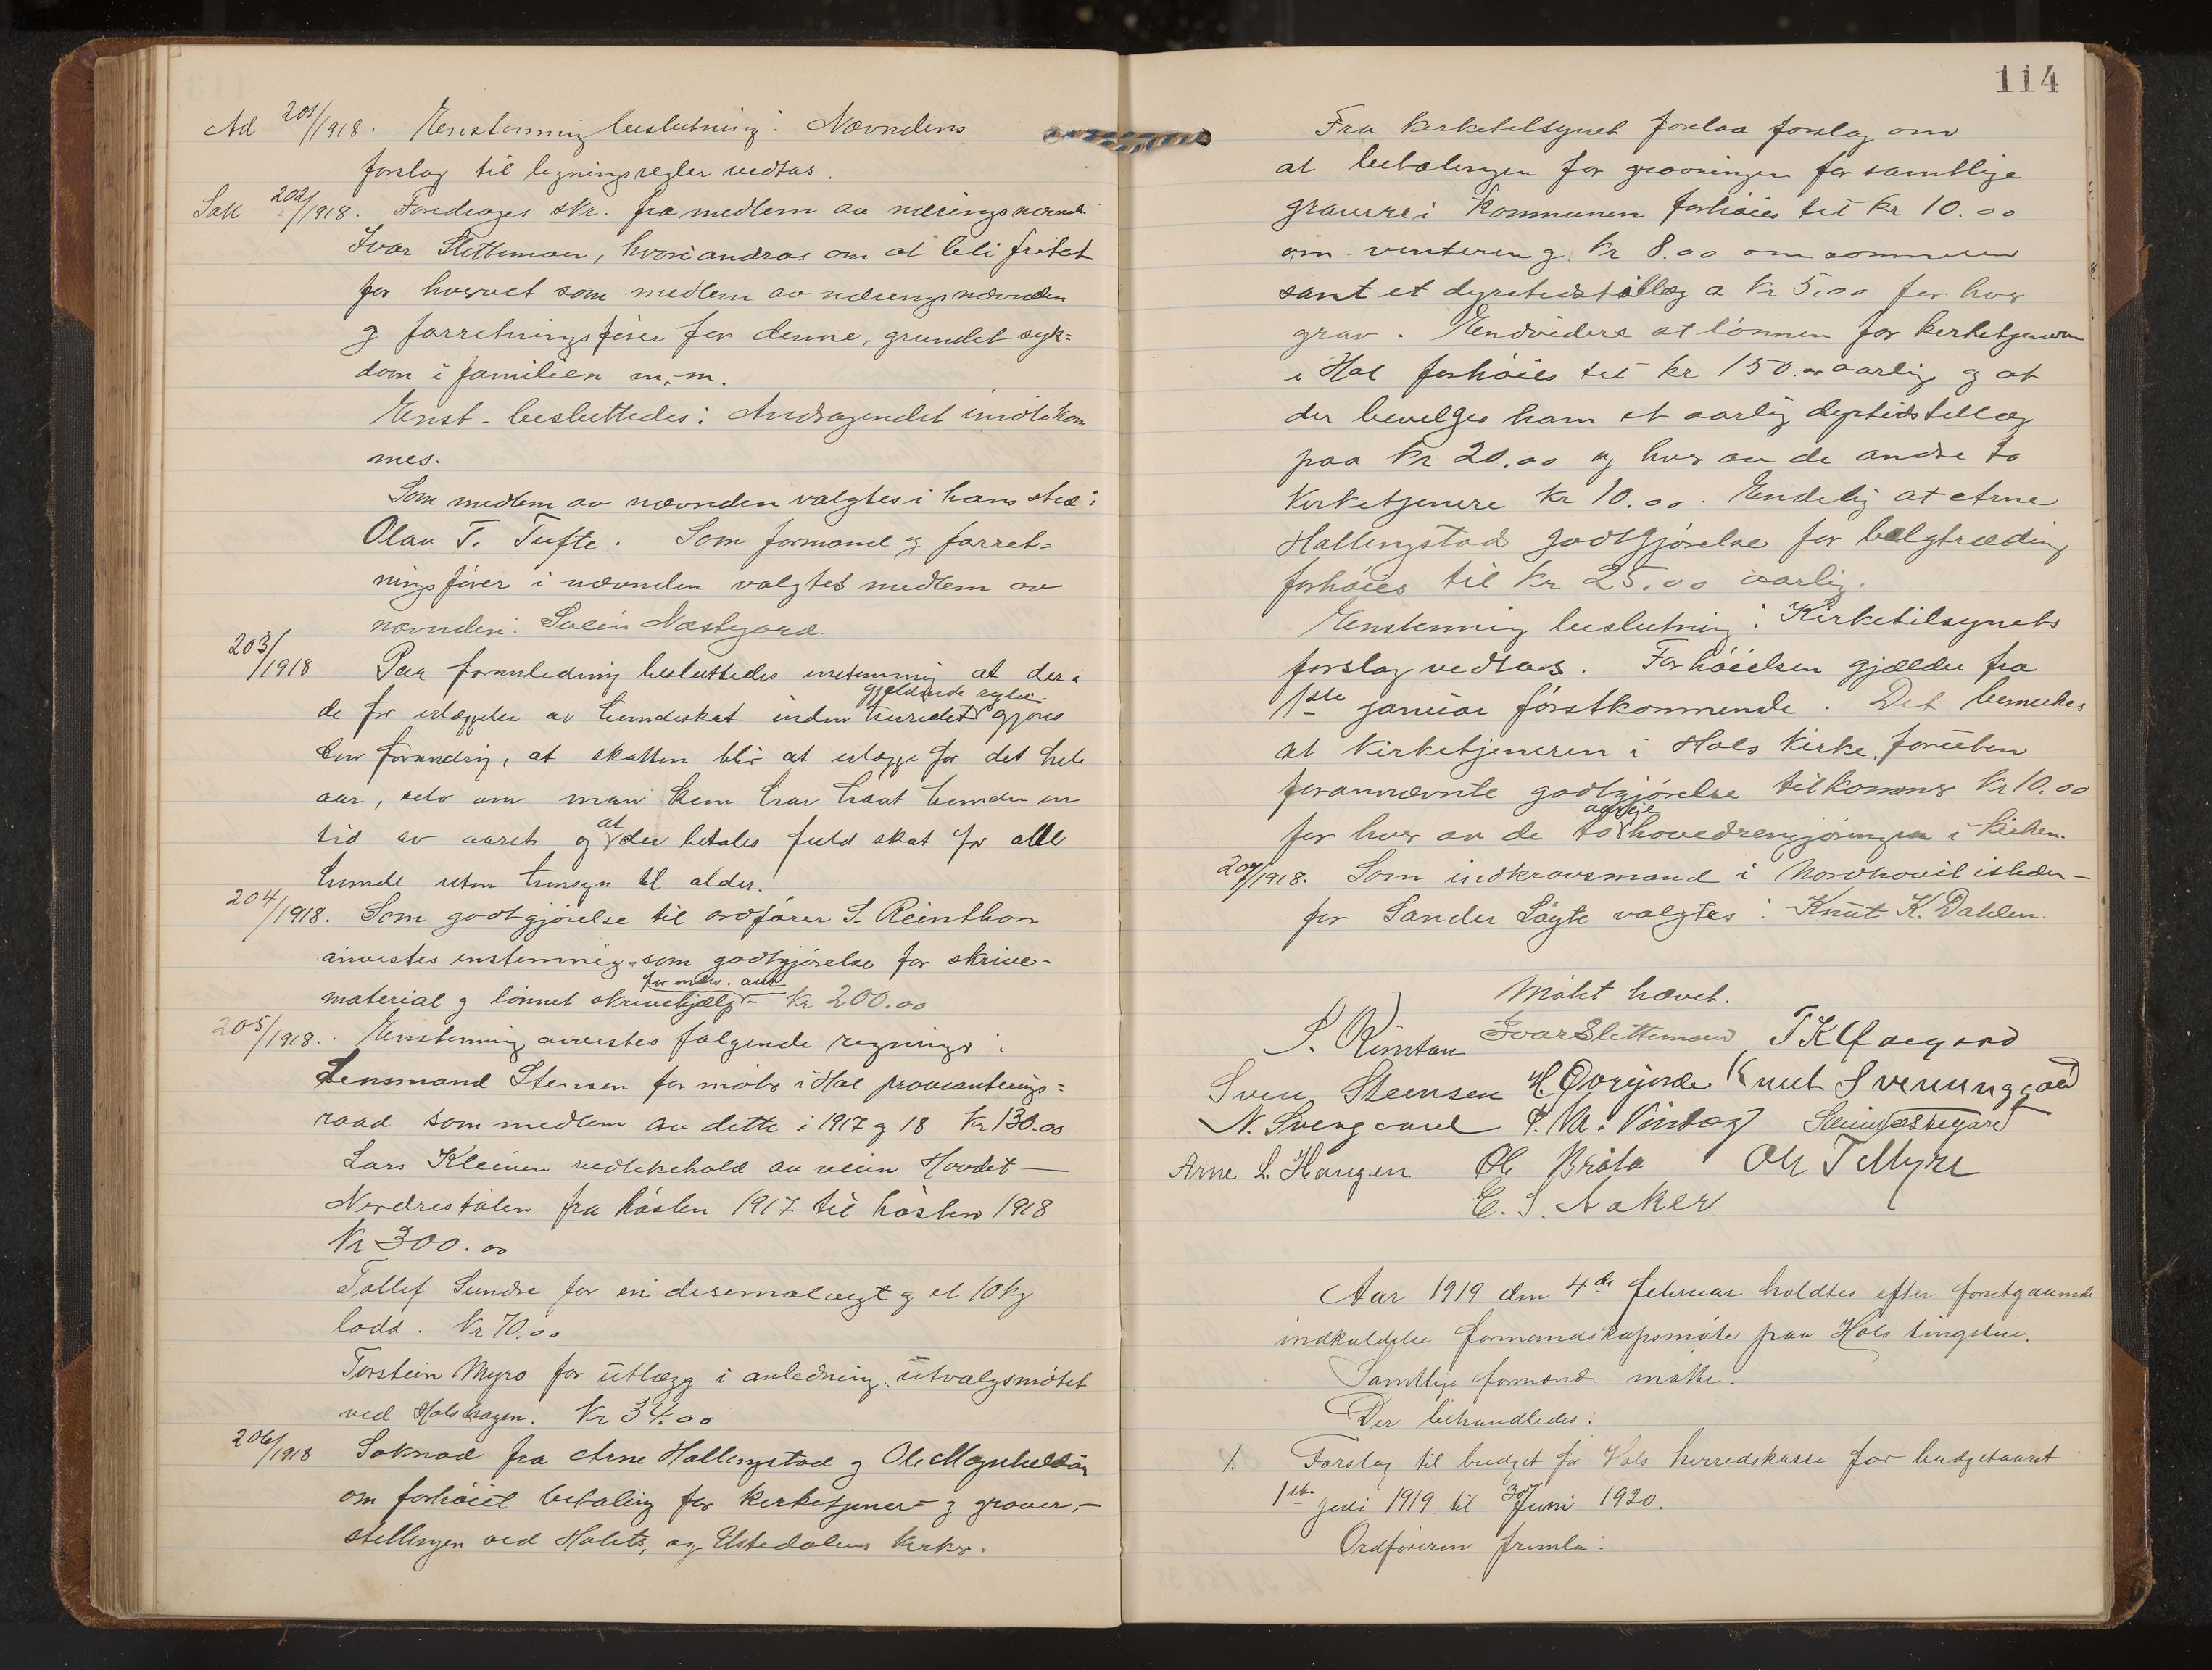 Ad 201/1918. Enstemmig beslutning: Nævndens
forslag til ligningsregler vedtas.
Sak 202/1918. Foredrages skr. fra medlem av næringsnævnd
Ivar Slettemoen, hvori andras om at bli fritat
for hvervet som medlem av næringsnævnden
og forretningsfører for denne, grundet syk=
dom i familien m.m.
Enst. besluttedes: Andragendet imøtekom
mes.
Som medlem av nævnden valgtes i hans sted:
Olav T. Tufte. Som formand og forret=
ningsfører i nævnden valgtes medlem av
nævnden: Svein Næstegard.
203/1918 Paa foranledning besluttedes enstemmig at der i
gjældende regler
de for erlæggelse av hundeskat inden herredet gjøres
den forandring, at skatten blir at erlægge for det hele
aar, selv om man kun har havt hunden en
at
tid av aaret og der betales fuld skat for alle
hunde uten hensyn til alder.
204/1918. Som godtgjørelse til ordfører S. Reinthon
anvistes enstemmig som godtgjørelse for skrive-
for indev. aar
material og lønnet skrivehjælp - Kr 200.00
205/1918. Enstemmig anvistes følgende regninger:
Lensmand Stensen for møter i Hol provianterings=
raad som medlem av dette i 1917 og 18 Kr 130.00
Lars Kleiven vedlikehold av veien Hovdet —
Nerdrestølen fra høsten 1917 til høsten 1918
Kr 300.00
Tollef Sundre for en desemalvegt og et 10 kg
lodd. Kr 70.00
Torstein Myro for utlæg i anledning utvalgsmøtet
ved Holshagen. Kr 34.00
206/1918 Søknad fra Arne Hallingstad og Ole Magnheldøn
om forhøiet betaling for kirketjener= og graver-
stillingen ved Holets, og Ustedalens kirker.
114
Fra kirketilsynet forelaa forslag om
at betalingen for gravningen for samtlige
gravere i kommunen forhøies til kr 10.00
om vinteren og kr 8.00 om sommeren
samt et dyrtidstillæg a kr 5.00 for hver
grav. Endvidere at lønnen for kirketjeneren
i Hol forhøies til kr 150.00 aarlig og at
der bevilges ham et aarlig dyrtidstillæg
paa kr 20.00 og hver av de andre to
kirketjenere kr 10.00. Endelig at Arne
Hallingstad godtgjørelse for bælgtræding
forhøies til kr 25.00 aarlig.
Enstemmig beslutning: Kirketilsynets
forslag vedtas. Forhøielsen gjælder fra
1ste januar førstkommende. Det bemerkes
at kirketjeneren i Hols kirke foruten
forannævnte godtgjørelse tilkommer kr 10.00
aarlige
for hver av de to hovedrengjøringer i kirken.
207/1918. Som indkravsmand i Nordhovil isteden-
for Sander Søgte valgtes: Knut K. Dahlen.
Møtet hævet.
S. Rinton Ivar Slettemoen T K Aaegaard
Sven Steensen H. Øvrejorde Knut Svenunggard
N. Svengaard Svein Næstegard
Arne L. Haugen Ole Bråta Ole T Myre
E. S. Aaker
Aar 1919 den 4de februar holdtes efter foregaaende
indkaldelse formandskapsmøte paa Hols tingstue.
Samtlige formænd møtte.
Der behandledes:
1. Forslag til budget for Hols herredskasse for budgetaaret
1ste juli 1919 til 30te juni 1920.
Ordføreren fremla: